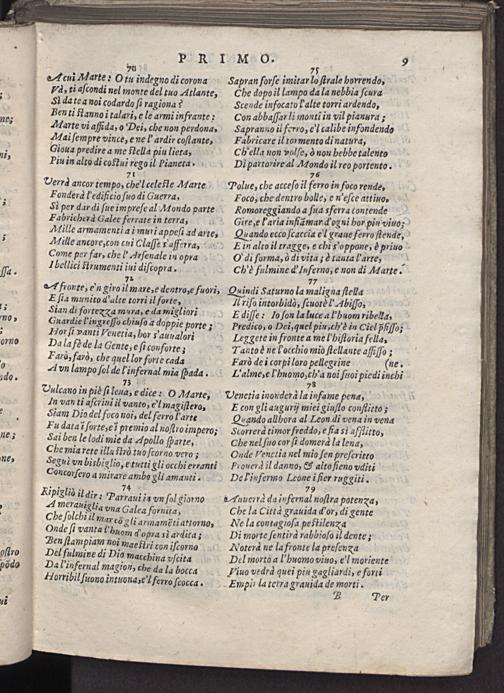 PRIMO. 9
70
A cui Marte: O tu indegno di corona
Và, ti ascondi nel monte del tuo Atlante,
Sì da te a noi codardo si ragiona?
Ben ti stanno i talari, e le armi infrante:
Marte vi assida, o Dei, che non perdona,
Mai sempre vince, e ne l'ardir costante,
Gioua predire a me stella piu lieta,
Piu in alto di costui rego il Pianeta.
71
Verrà ancor tempo, che'l celeste Marte
Fonderà l'edificio suo di Guerra,
Sì per dar di sue imprese al Mondo parte
Fabricherà Galee ferrate in terra,
Mille armamenti a i muri appesi ad arte,
Mille ancore, con cui Classe s'afferra,
Come per far, che l'Arsenale in opra
I bellici strumenti iui discopra.
72
A fronte, e'n giro il mare, e dentro, e fuori,
E sia munito d'alte torri il forte,
Sian di fortezza mura, e da migliori
Guardie l'ingresso chiuso a doppie porte;
Hor si vanti Venetia, hor s'aualori
Da la fè de la Gente, e si conforte;
Farò, farò, che quel lor forte cada
A vn lampo sol de l'infernal mia spada.
73
Vulcano in piè si leua, e dice: O Marte,
In van ti ascriui il vanto, e'l magistero,
Siam Dio del foco noi, del ferro l'arte
Fu data a'i forte, e'l premio al nostro impero;
Sai ben le lodi mie da Apollo sparte,
Che mia rete illustrò tuo scorno vero;
Seguì vn bisbiglio, e tutti gli occhi erranti
Concorsero a mirare ambo gli amanti.
74
Ripigliò il dir: Parraui in vn sol giorno
A merauiglia vna Galea fornita,
Che solchi il mar cō gli armamēti attorno,
Onde si vanta l'huom d'opra sì ardita;
Ben stampiam noi maestri con iscorno
Del fulmine di Dio macchina vscita
Da l'infernal magion, che da la bocca
Horribil suono intuona, e'l ferro scocca.
75
Sapran forse imitar lo strale horrendo,
Che dopo il lampo da la nebbia scura
Scende infocato l'alte torri ardendo,
Con abbassar li monti in vil pianura;
Sapranno il ferro, e'l calibe infondendo
Fabricare il tormento di natura,
Ch'ella non volse, ò non hebbe talento
Di partorire al Mondo il reo portento.
76
Polue, che acceso il ferro in foco rende,
Foco, che dentro bolle, e n'esce attiuo,
Romoreggiando a sua sferra contende
Gire, e l'aria infiammar d'ogni hor piu viuo;
Quando ecco scaccia e'l graue ferro stende,
E in alto il tragge, e chi s'oppone, è priuo
O' di forma, ò di vita; è tanta l'arte,
Ch'è fulmine d'Inferno, e non di Marte.
77
Quindi Saturno la maligna stella
Il riso intorbidò, scuotè l'Abisso;
E disse: Io son la luce a l'huom ribella,
Predico, o Dei, quel piu, ch'è in Ciel p̄fisso;
Leggete in fronte a me l'historia fella,
Tanto è ne l'occhio mio stellante affisso;
Farò de i corpi loro pellegrine (ne.
L'alme, e l'huomo, ch'a noi suoi piedi inchi
78
Venetia inonderà la infame pena,
E con gli augurij miei giusto conflitto;
Quando allhora al Leon di vena in vena
Scorrerà timor freddo, e sia sì afflitto,
Che nel suo cor si domerà la lena,
Onde Venetia nel mio sen prescritto
Prouerà il danno, & alto fieno vditi
De l'infermo Leone i fier ruggiti.
79
Auuerrà da infernal nostra potenza,
Che la Città grauida d'or, di gente
Ne la contagiosa pestilenza
Di morte sentirà rabbioso il dente;
Noterà ne la fronte la presenza
Del morto a l'huomo viuo, e'l moriente
Viuo vedrà quei piu gagliardi, e forti
Empir la terra grauida de morti.
B Per